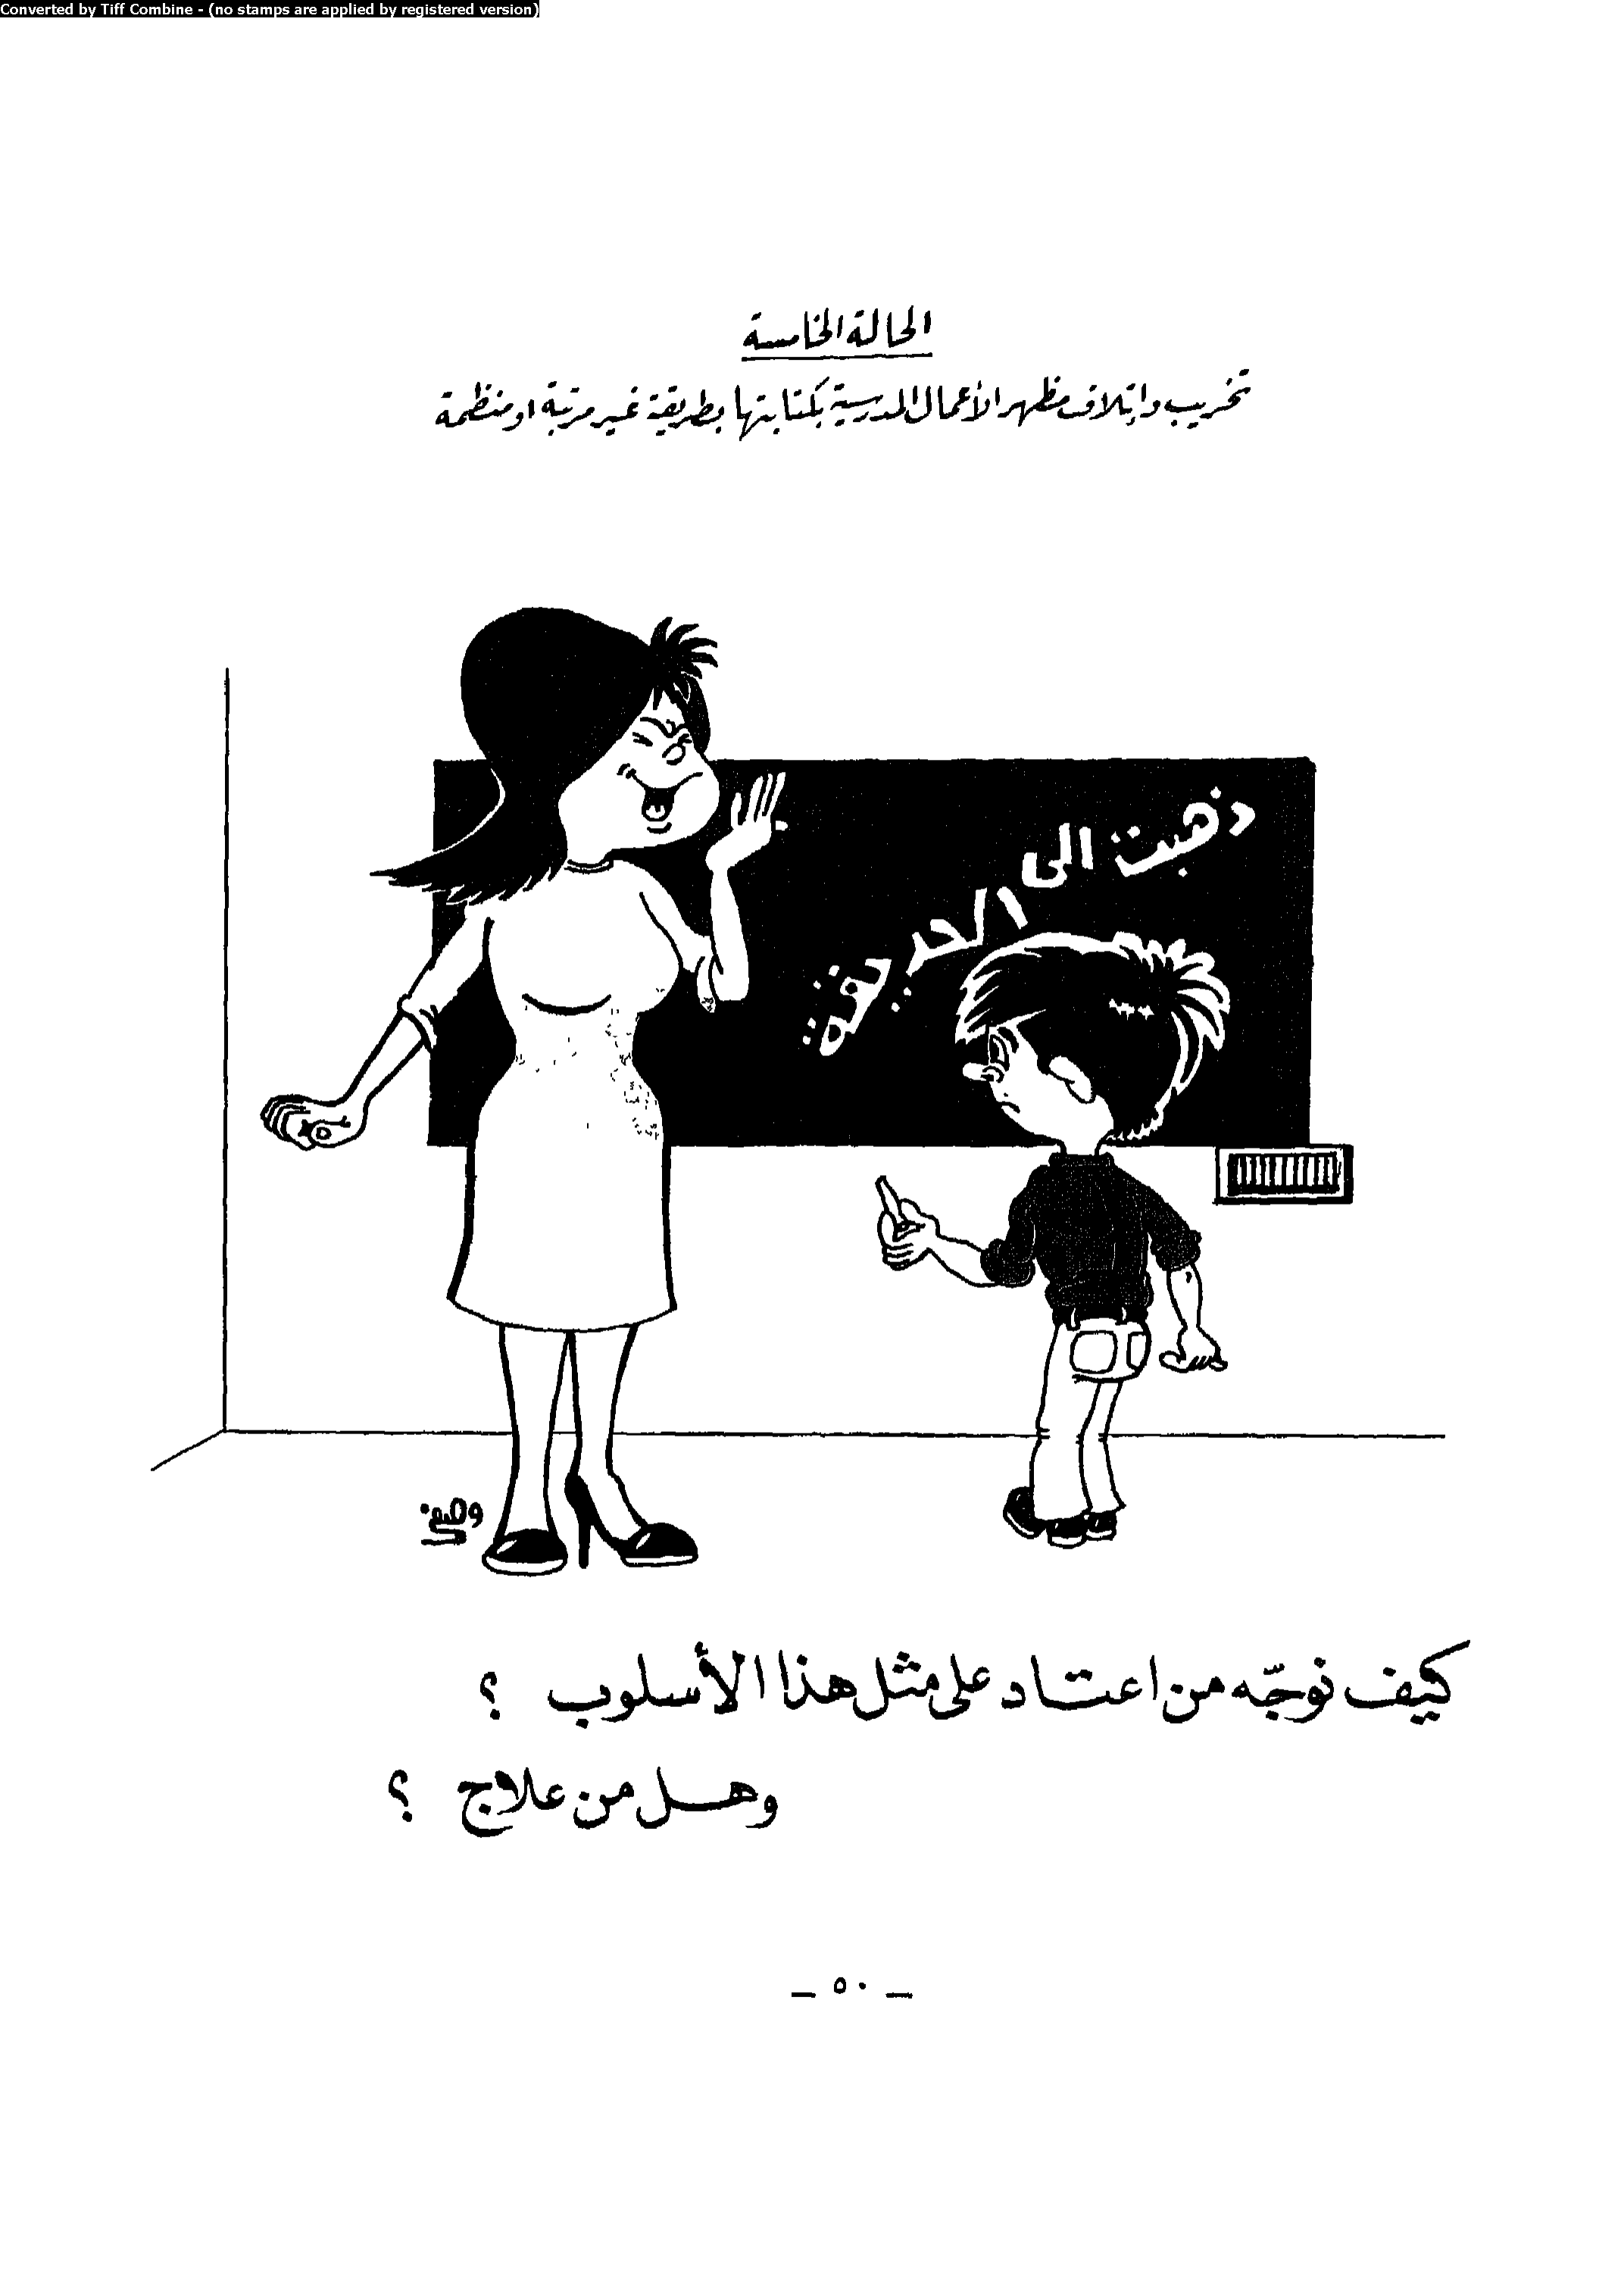 Converted by Tiff Combine - (no stamps are applied by registered version)
الحالة الخامسة
تخريب وإتلاف مظهر الأعمال المدرسية بكتابتها بطريقة غير مرتبة او منظمة
ذهبت الى الحديقة
كيف نوجّه من اعتاد على مثل هذا الأسلوب ؟
وهل من علاج ؟
— ٥٠ —